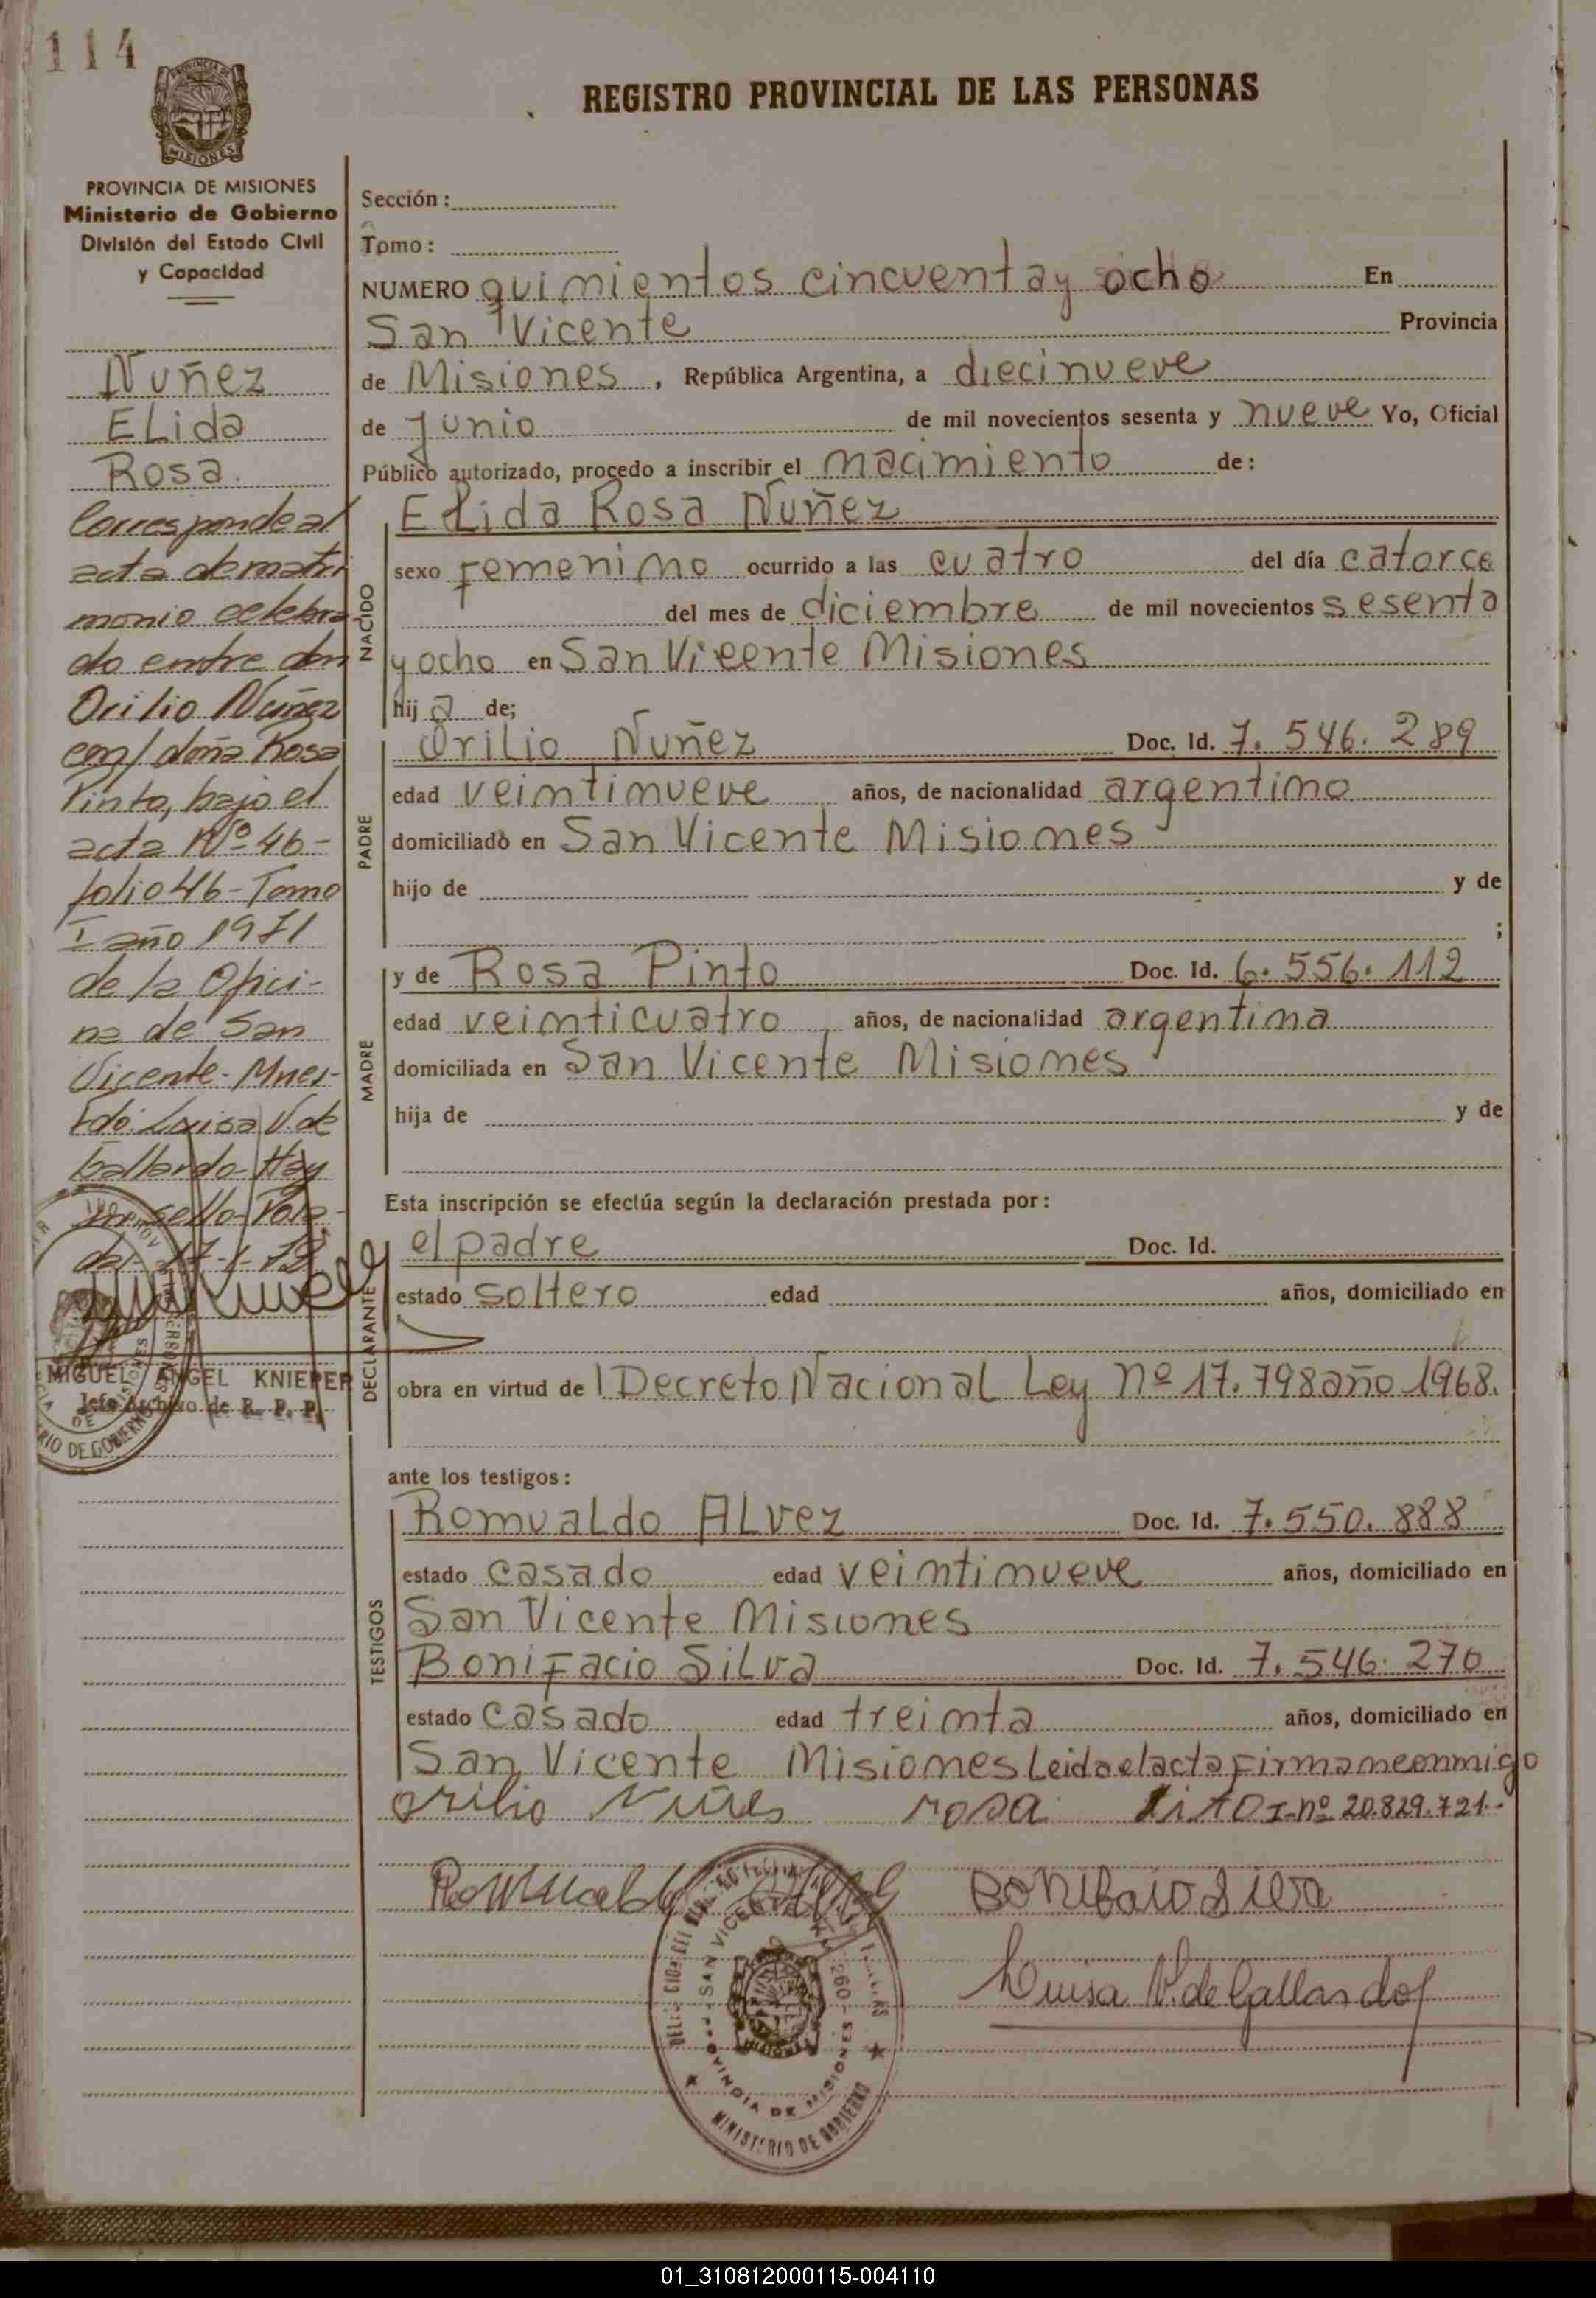 114
REGISTRO PROVINCIAL DE LAS PERSONAS
MISIONES
PROVINCIA DE MISIONES
Ministerio de Gobierno
División del Estado Civil
y Capacidad
Nuñez
ELida
Rosa.
Corresponde al
acta de matri
monio celebra
do entre don
Orilio Nuñez
con/ doña Rosa
Pinto, bajo el
acta Nº 46-
folio 46-Tomo
I año 1971
de la Ofici-
na de San
Vicente-Mnes-
Fdo: Luisa V. de
Gallardo-Hay
un sello-Pos.
das-17-1-72
MIGUEL ANGEL KNIEPER
Jefe Archivo de R. P. P.
Sección:
Tomo:
NUMERO quimientos cincuentay ocho En
San Vicente Provincia
de Misiones, República Argentina, a diecinueve
de junio de mil novecientos sesenta y nueve Yo, Oficial
Público autorizado, procedo a inscribir el nacimiento de:
NACIDO
Elida Rosa Nuñez
sexo femenino ocurrido a las cuatro del día catorce
del mes de diciembre de mil novecientos sesenta
y ocho en San Vicente Misiones
hij a de;
PADRE
Orilio Nuñez Doc. Id. 7. 546. 289
edad veintinueve años, de nacionalidad argentino
domiciliado en San Vicente Misiones
hijo de y de
;
MADRE
y de Rosa Pinto Doc. Id. 6. 556. 112
edad veinticuatro años, de nacionalidad argentina
domiciliada en San Vicente Misiones
hija de y de
Esta inscripción se efectúa según la declaración prestada por:
DECLARANTE
el padre Doc. Id.
estado soltero edad años, domiciliado en
obra en virtud de l Decreto Nacional Ley nº 17.798 año 1968.
ante los testigos:
TESTIGOS
Romualdo ALvez Doc. Id. 7. 550. 888
estado casado edad veintinueve años, domiciliado en
San Vicente Misiones
Bonifacio Silva Doc. Id. 7. 546. 270
estado casado edad treinta años, domiciliado en
San Vicente Misiones Leida el acta firman conmigo
orilio Nuñes rosa I-nº 20.829.721.-
Romualdo Alvez Bonifacio Silva
Luisa V. de Gallardo
SAN VICENTE
PROVINCIA DE MISIONES
MINISTERIO DE GOBIERNO
01_310812000115-004110